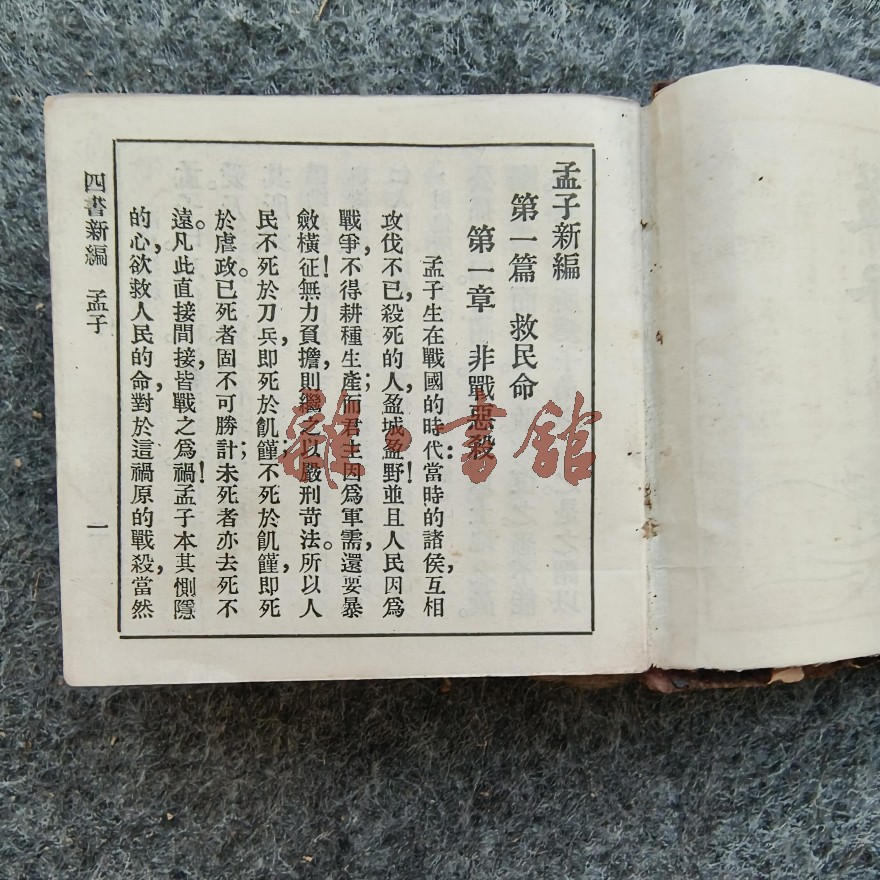 孟子新編
第一篇 救民命
第一章 非戰惡殺
孟子生在戰國的時代：當時的諸侯，互相
攻伐不已，殺死的人盈城盈野！並且人民因爲
戰爭，不得耕種生產；而君主因爲軍需，還要暴
斂橫征！無力負擔，則繼之以嚴刑苛法。所以人
民不死於刀兵，即死於飢饉；不死於飢饉，即死
於虐政。已死者固不可勝計；未死者亦去死不
遠。凡此直接間接，皆戰之爲禍！孟子本其惻隱
的心，欲救人民的命，對於這禍原的戰殺，當然
四書新編 孟子 一
雜·書館